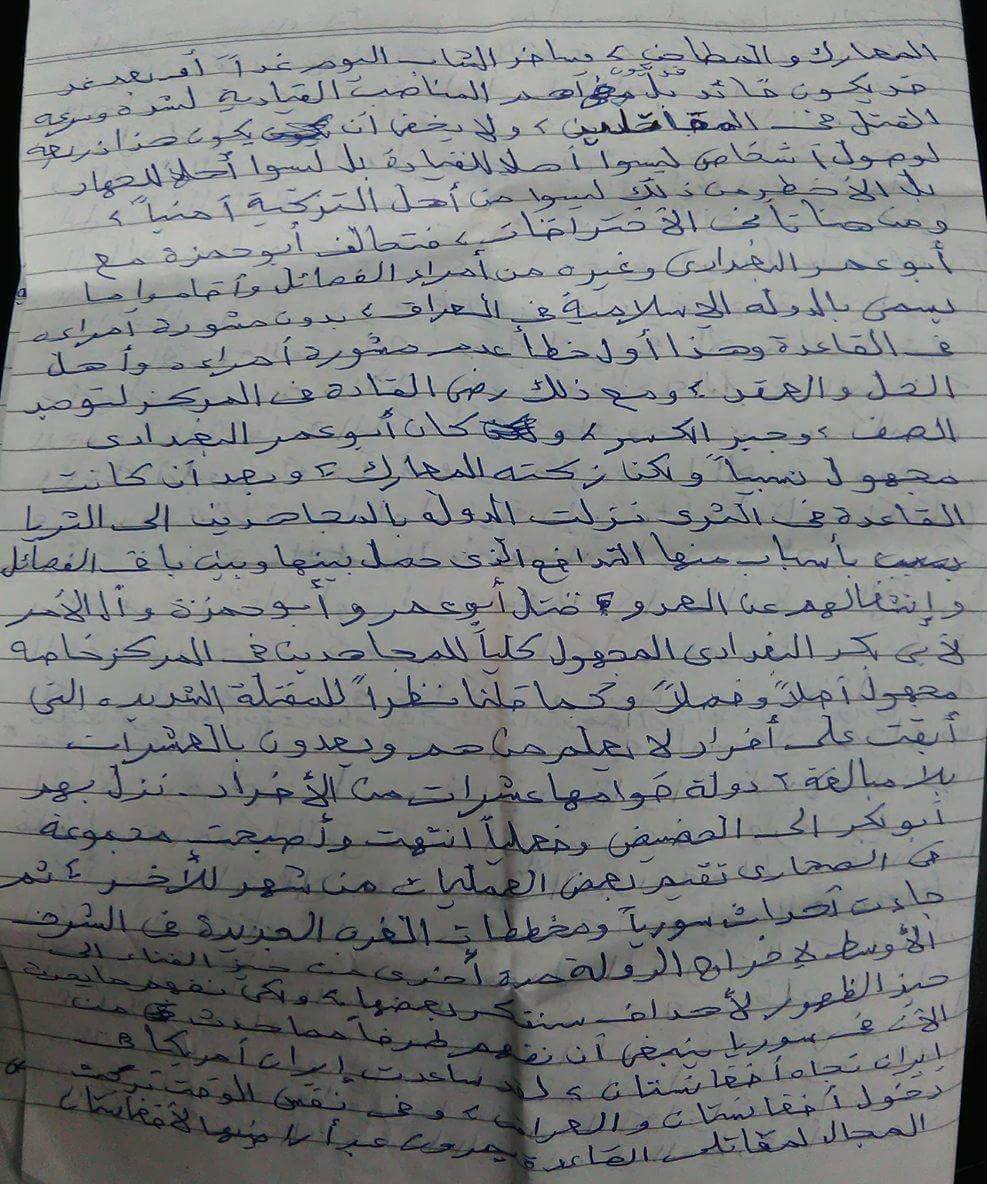 المعارك والمطاحن، وساخر الشاب اليوم غداً أو بعد غد
قد يكون قائد بل قد يكون من أهم المناصب القيادية لشدة وسرعة
القتل في المقاتلين، ولا يخفى أن يكون هذا ذريعة
لوصول أشخاص ليسوا أصلا للقيادة بل ليسوا أهلا للجهاد
بل الأخطر من ذلك ليسوا من أهل التزكية أمنياً،
ومن هنا تأتى الاختراقات، فتحالف أبو حمزة مع
أبو عمر البغدادى وغيره من أمراء الفصائل وأقاموا ما
يسمى بالدولة الإسلامية في العراق، بدون مشورة أمراءه
في القاعدة وهذا أول خطأ عدم مشورة أمراءه وأهل
الحل والعقد، ومع ذلك رضى القادة في المركز لتوحيد
الصف، وجبر الكسر، و كان أبو عمر البغدادى
مجهول نسبياً ولكنا زكته المعارك، وبعد أن كانت
القاعدة في الثرى نزلت الدولة بالمجاهدين الى الثريا
بأسباب منها التدافع الذى حصل بينها وبين باقى الفصائل
وإنشغالهم عن العدو، قتل أبو عمر و أبو حمزة وأل الأمر
لأبى بكر البغدادى المجهول كلياً للمجاهدين في المركز خاصة
مجهول أصلاً وفصلاً وكما قلنا نظراً للمقتلة الشديده التى
أبقت على أفراد لا يعلم من هم ويعدون بالعشرات
بلا مبالغة، دولة قوامها عشرات من الأفراد.. نزل بهم
أبو بكر الى الحضيض وفعلياً انتهت وأصبحت مجموعة
في الصحارى تقيم بعض العمليات من شهر للأخر، ثم
جاءت أحداث سوريا ومخططات الغرب الجديدة في الشرق
الأوسط لإخراج الدولة مرة أخرى من حيز الفناء إلى
حيز الظهور لأهداف سنذكر بعضها، ولكى نفهم ما يحدث
الأن في سوريا ينبغى أن نفهم طرفاً مما حدث من
ايران تجاه أفغانستان، لقد ساعدت إيران أمريكا في
دخول أفغانستان والعراق، وفى نفس الوقت تركت
المجال لمقاتلى القاعدة يمرون عبر أراضيها لأفغانستان